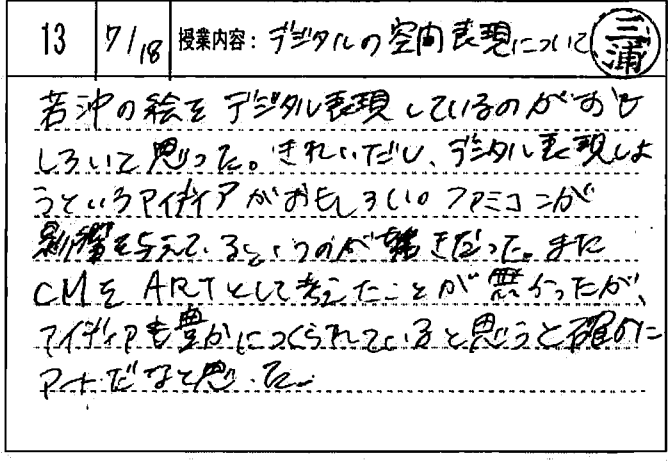 13 7/18 授業内容: デジタルの空間表現について 三浦
若沖の絵をデジタル表現しているのがおも
しろいと思った。きれいだし、デジタル表現しよ
うというアイディアがおもしろい。ファミコンが
影響を与えているというのが驚きだった。また
CMをARTとして考えたことが無かったが、
アイディアも豊かにつくられていると思うと確かに
アートだなと思った。